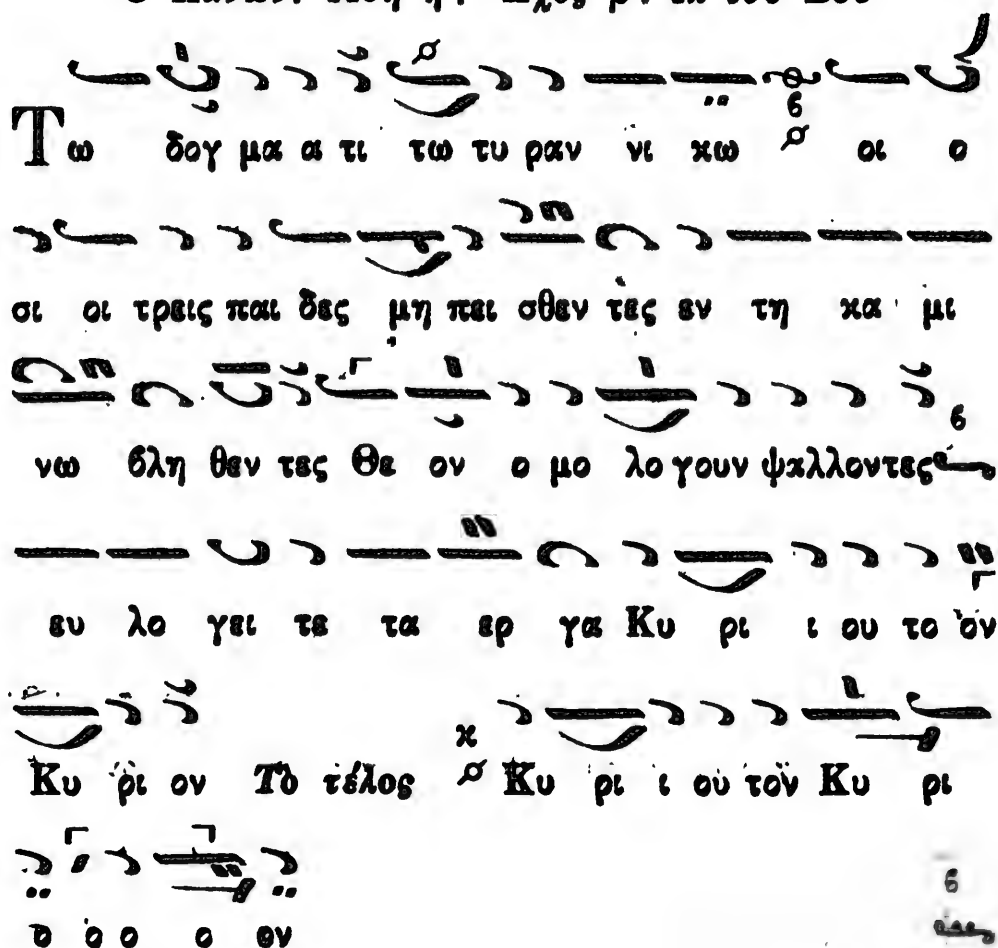 Τω δογ μα α τι τω τυ ραν νι κω οι ο
σι οι τρεις παι δες μη πει σθεν τες εν τη κα μι
νω βλη θεν τες Θε ον ο μο λο γουν ψαλλοντες
ευ λο γει τε τα ερ γα Κυ ρι ι ου το ον
Κυ ρι ον Το τέλος Κυ ρι ι ου τον Κυ ρι
ο ο ο ο ον